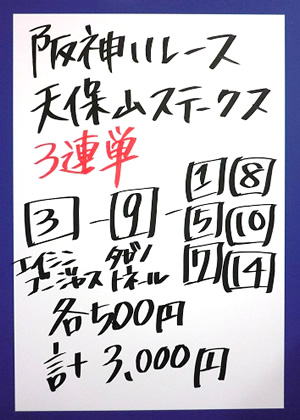 阪神11レース
天保山ステークス
3連単
1 8
3 - 9 - 5 10
7 14
エイシン タガノ
ゴージャス トネール
各500円
計3,000円